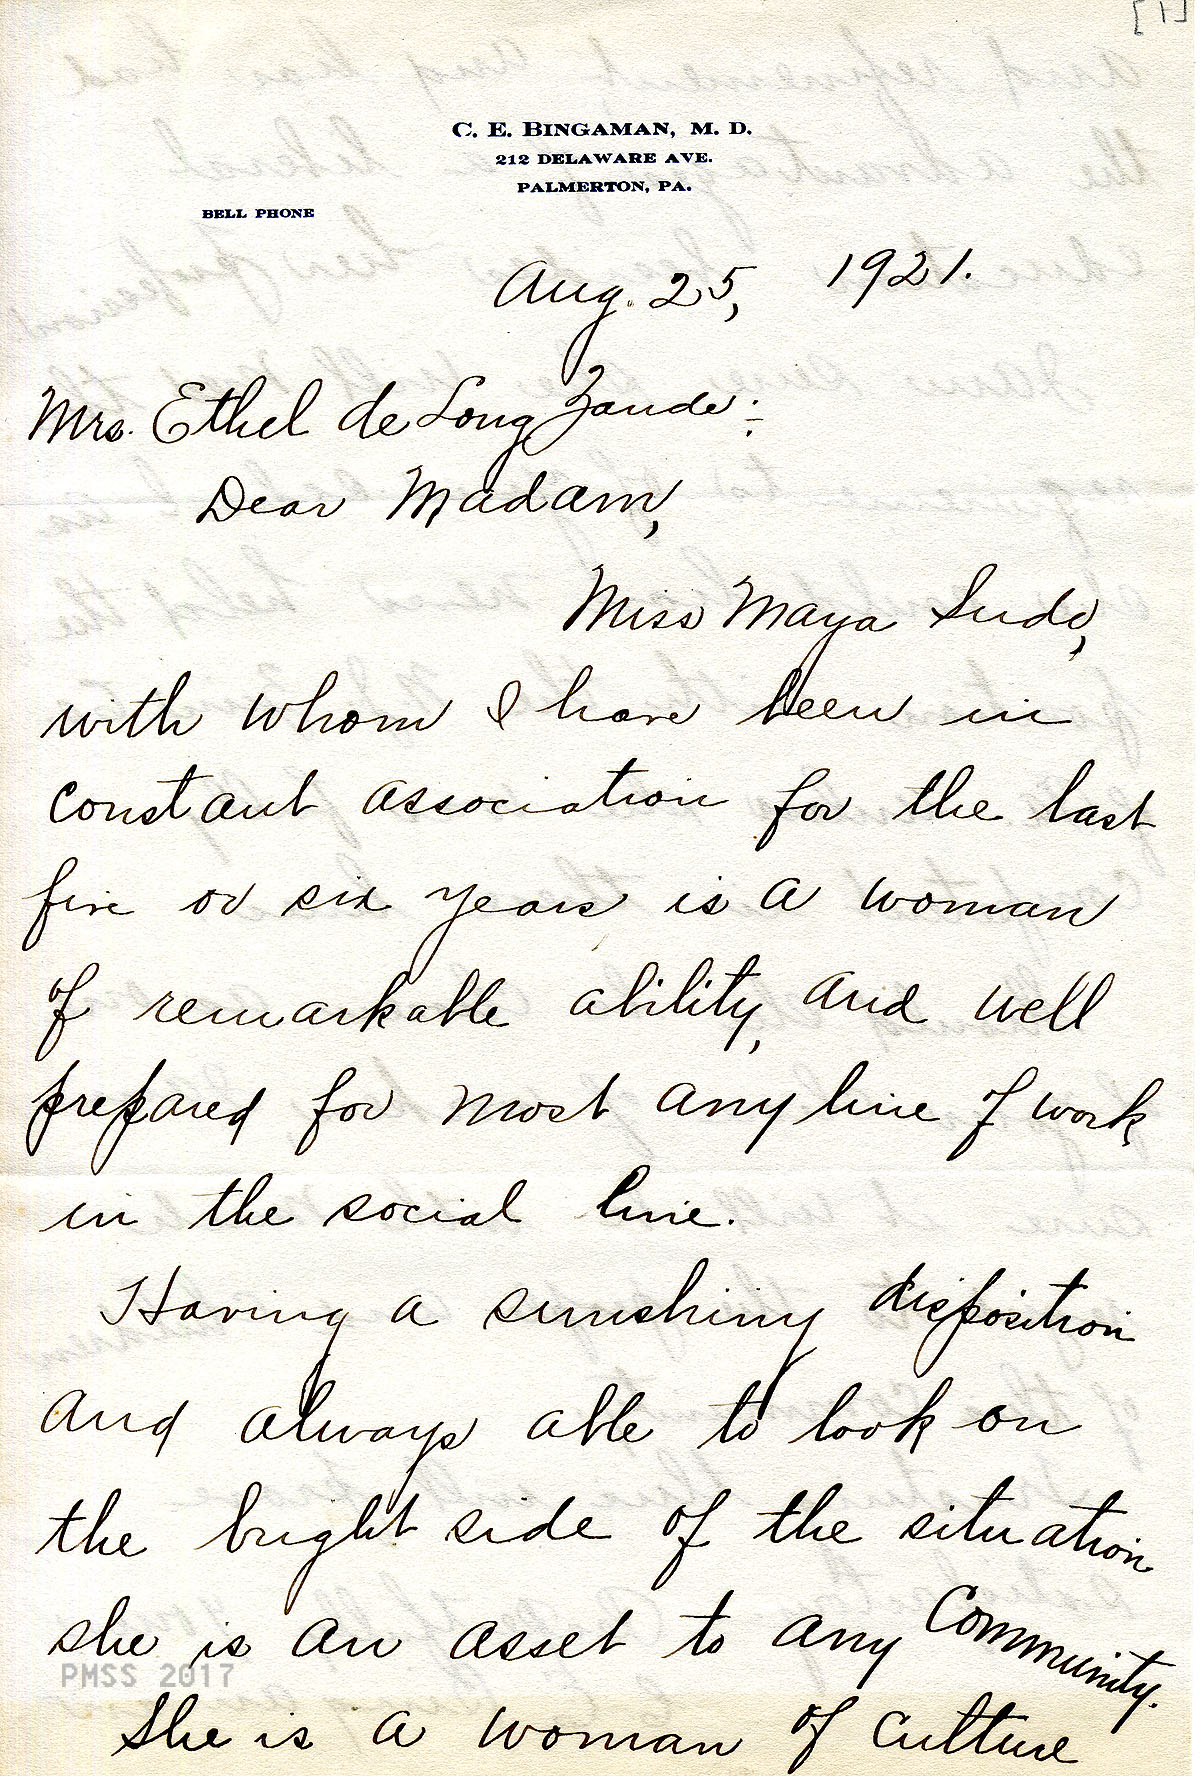 [1]
C. E. BINGAMAN, M. D.
212 DELAWARE AVE.
PALMERTON, PA.
BELL PHONE
Aug. 25, 1921.
Mrs. Ethel de Long Zande:
Dear Madam,
Miss Maya Sudo,
with whom I have been in
constant association for the last
five or six years is a woman
of remarkable ability, and well
prepared for most any line of work
in the social line.
Having a sunshiny disposition
and always able to look on
the bright side of the situation
she is an asset to any community.
She is a woman of culture
PMSS 2017